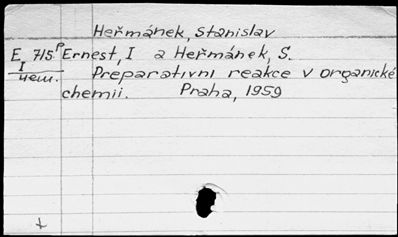 Heřmánek, Stanislav
E 715 P Ernest, I a Heřmánek, S.
I
чеш. Preparativní reakce v organické
chemii. Praha, 1959